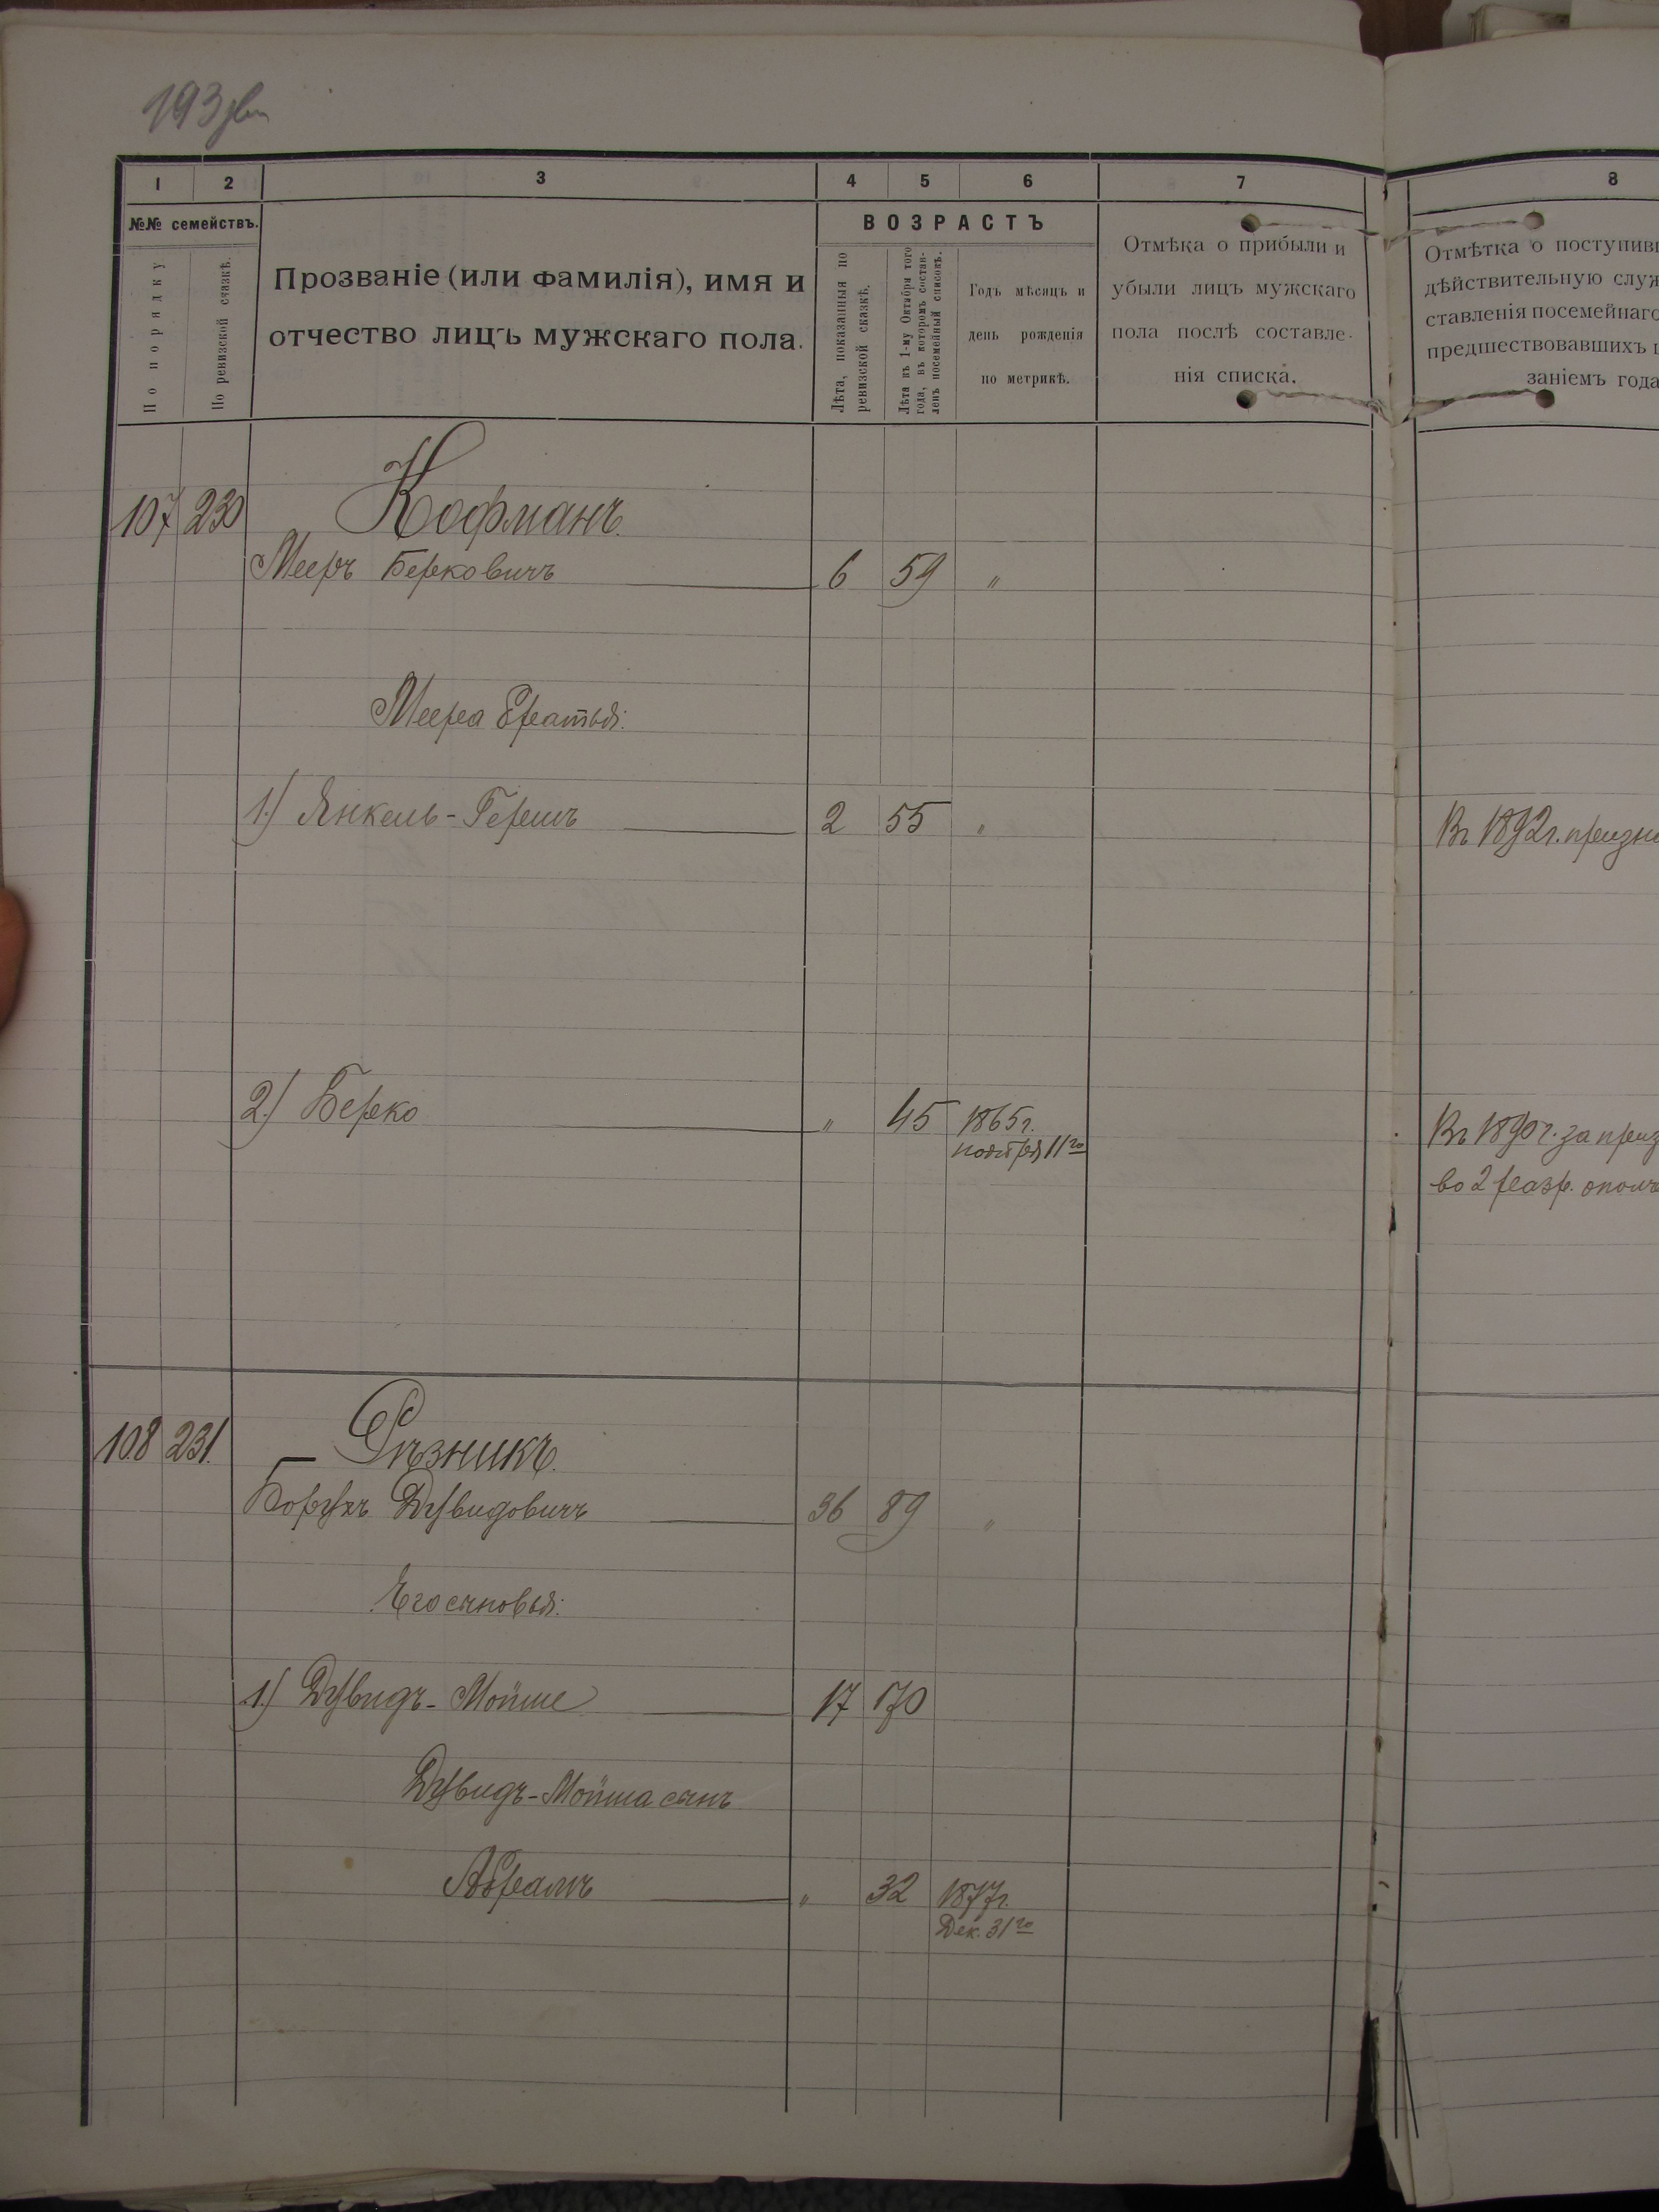 193
1 2 3 4 5 6 7 8
№№ семействъ.
По порядку
По ревизской сказкѣ.
Прозваніе (или фамилія), имя и
отчество лицъ мужскаго пола.
ВОЗРАСТЪ
Лѣта, показанныя по
ревизской сказкѣ.
Лѣта къ 1-му Октября того
года, въ которомъ состав-
ленъ посемейный списокъ.
Годъ мѣсяцъ и
день рожденія
по метрикѣ.
Отмѣка о прибыли и
убыли лицъ мужскаго
пола послѣ составле-
нія списка.
Отмѣтка о поступивш
дѣйствительную служ
ставленія посемейнаго
предшествовавшихъ п
заніемъ года
107 230 Кофманъ.
Мееръ Берковичъ 6 59 "
Меера братья:
1.) Янкель-Гершъ 2 55 "
Въ 1892г. призна
2.) Берко " 45 1865г.
ноября 11го
Въ 1890г. за приз
во 2 разр. ополч
108 231. Рѣзникъ.
Борухъ Дувидовичъ 36 89 "
Его сыновья:
1.) Дувидъ-Мойше 17 70
Дувидъ-Мойша сынъ
Абрамъ " 32 1877г.
Дек. 31го